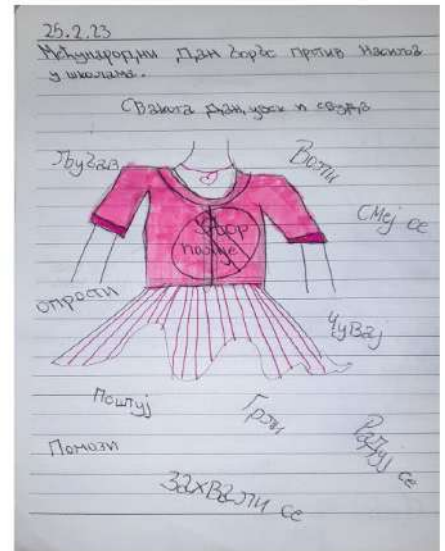 25.2.23
Међународни Дан борбе против Насиља
у школама.
Сваког дан, увек и свуда
Љубав
Воли
Смеј се
Збор
насиље
опрости
Чувај
Поштуј
Грли
Помози
Радуј се
Захвали се